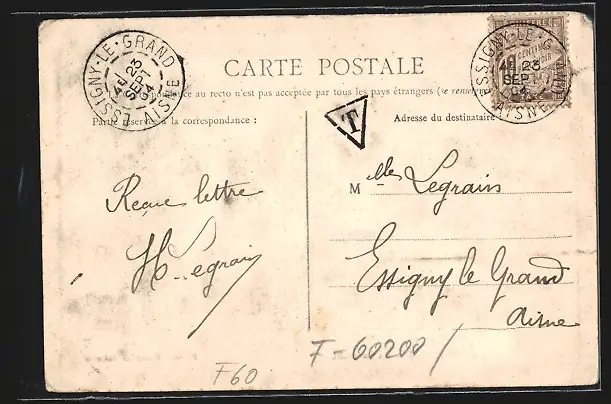 ESSIGNY-LE-GRAND
4E 23
SEPT
04
AISNE
CHIFFRE
ESSIGNY-LE-GRAND
4E 23
SEPT
04
AISNE
CARTE POSTALE
au recto n'est pas acceptée par tous les pays étrangers (se
Partie réservée à la correspondance :
T
Adresse du destinataire
Melles Legrain
Reçue lettre
H. Légrain
Essigny le Grand
Aisne
F-60200
F60